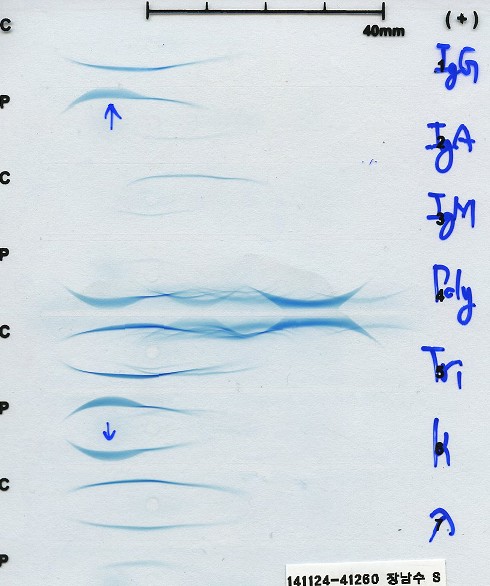 C
(+)
40mm
1 IgG
P
2 IgA
C
3 IgM
P
4 Poly
C
5 Tri
P
6 k
C
7 λ
P
141124-41260 장남수 S